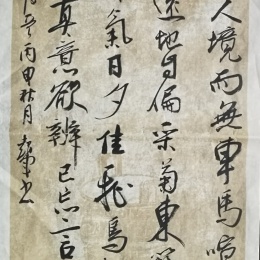 人境而無車馬喧
遠地自偏采菊東
氣日夕佳飛鳥
真意欲辨已忘言
丙申秋月 書